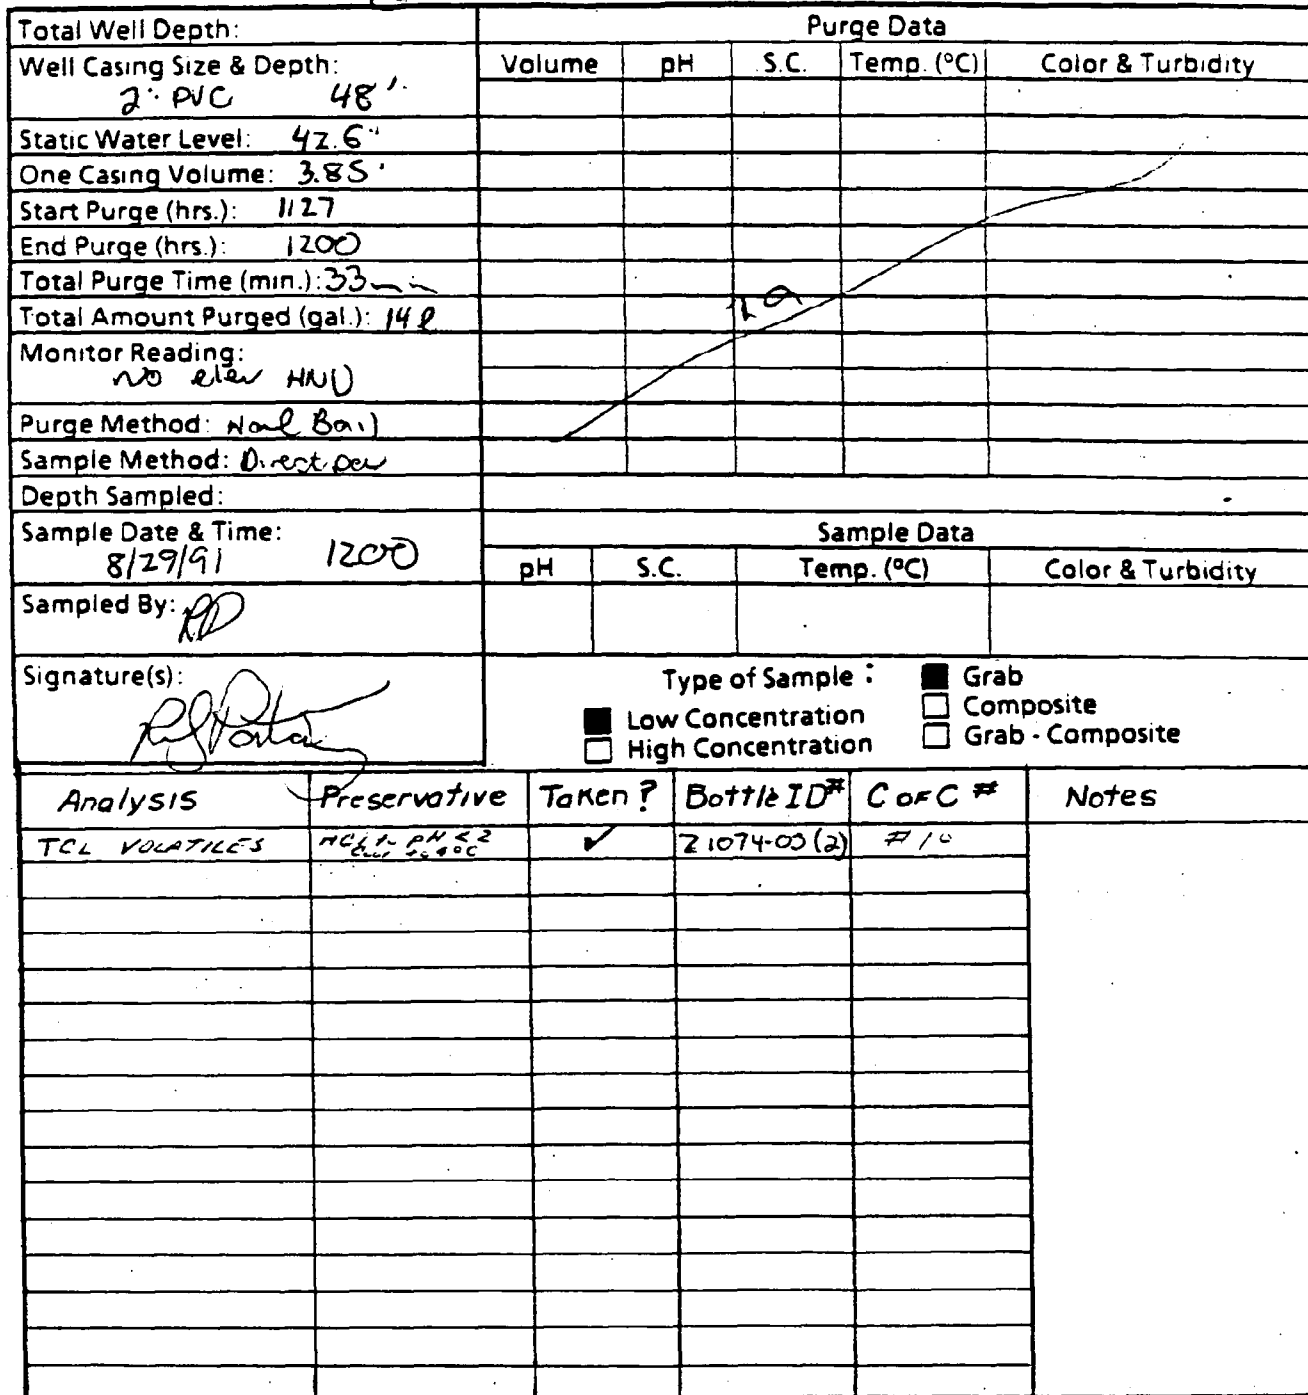 Total Well Depth:
Well Casing Size & Depth:
2" PVC 48'
Static Water Level: 42.6'
One Casing Volume: 3.85
Start Purge (hrs.): 1127
End Purge (hrs.): 1200
Total Purge Time (min.): 33 min
Total Amount Purged (gal.): 14 l
Monitor Reading:
no elev HNU
Purge Method: Hand Bail
Sample Method: Direct pour
Depth Sampled:
Sample Date & Time:
8/29/91 1200
Sampled By: RP
Signature(s):
Purge Data
Volume pH S.C. Temp. (°C) Color & Turbidity
Sample Data
pH S.C. Temp. (°C) Color & Turbidity
Type of Sample :
Low Concentration
High Concentration
Grab
Composite
Grab - Composite
Analysis Preservative Taken? Bottle ID# C of C # Notes
TCL VOLATILES HCL to pH < 2 ✓ Z1074-03 (2) #10
Cool to 4°C